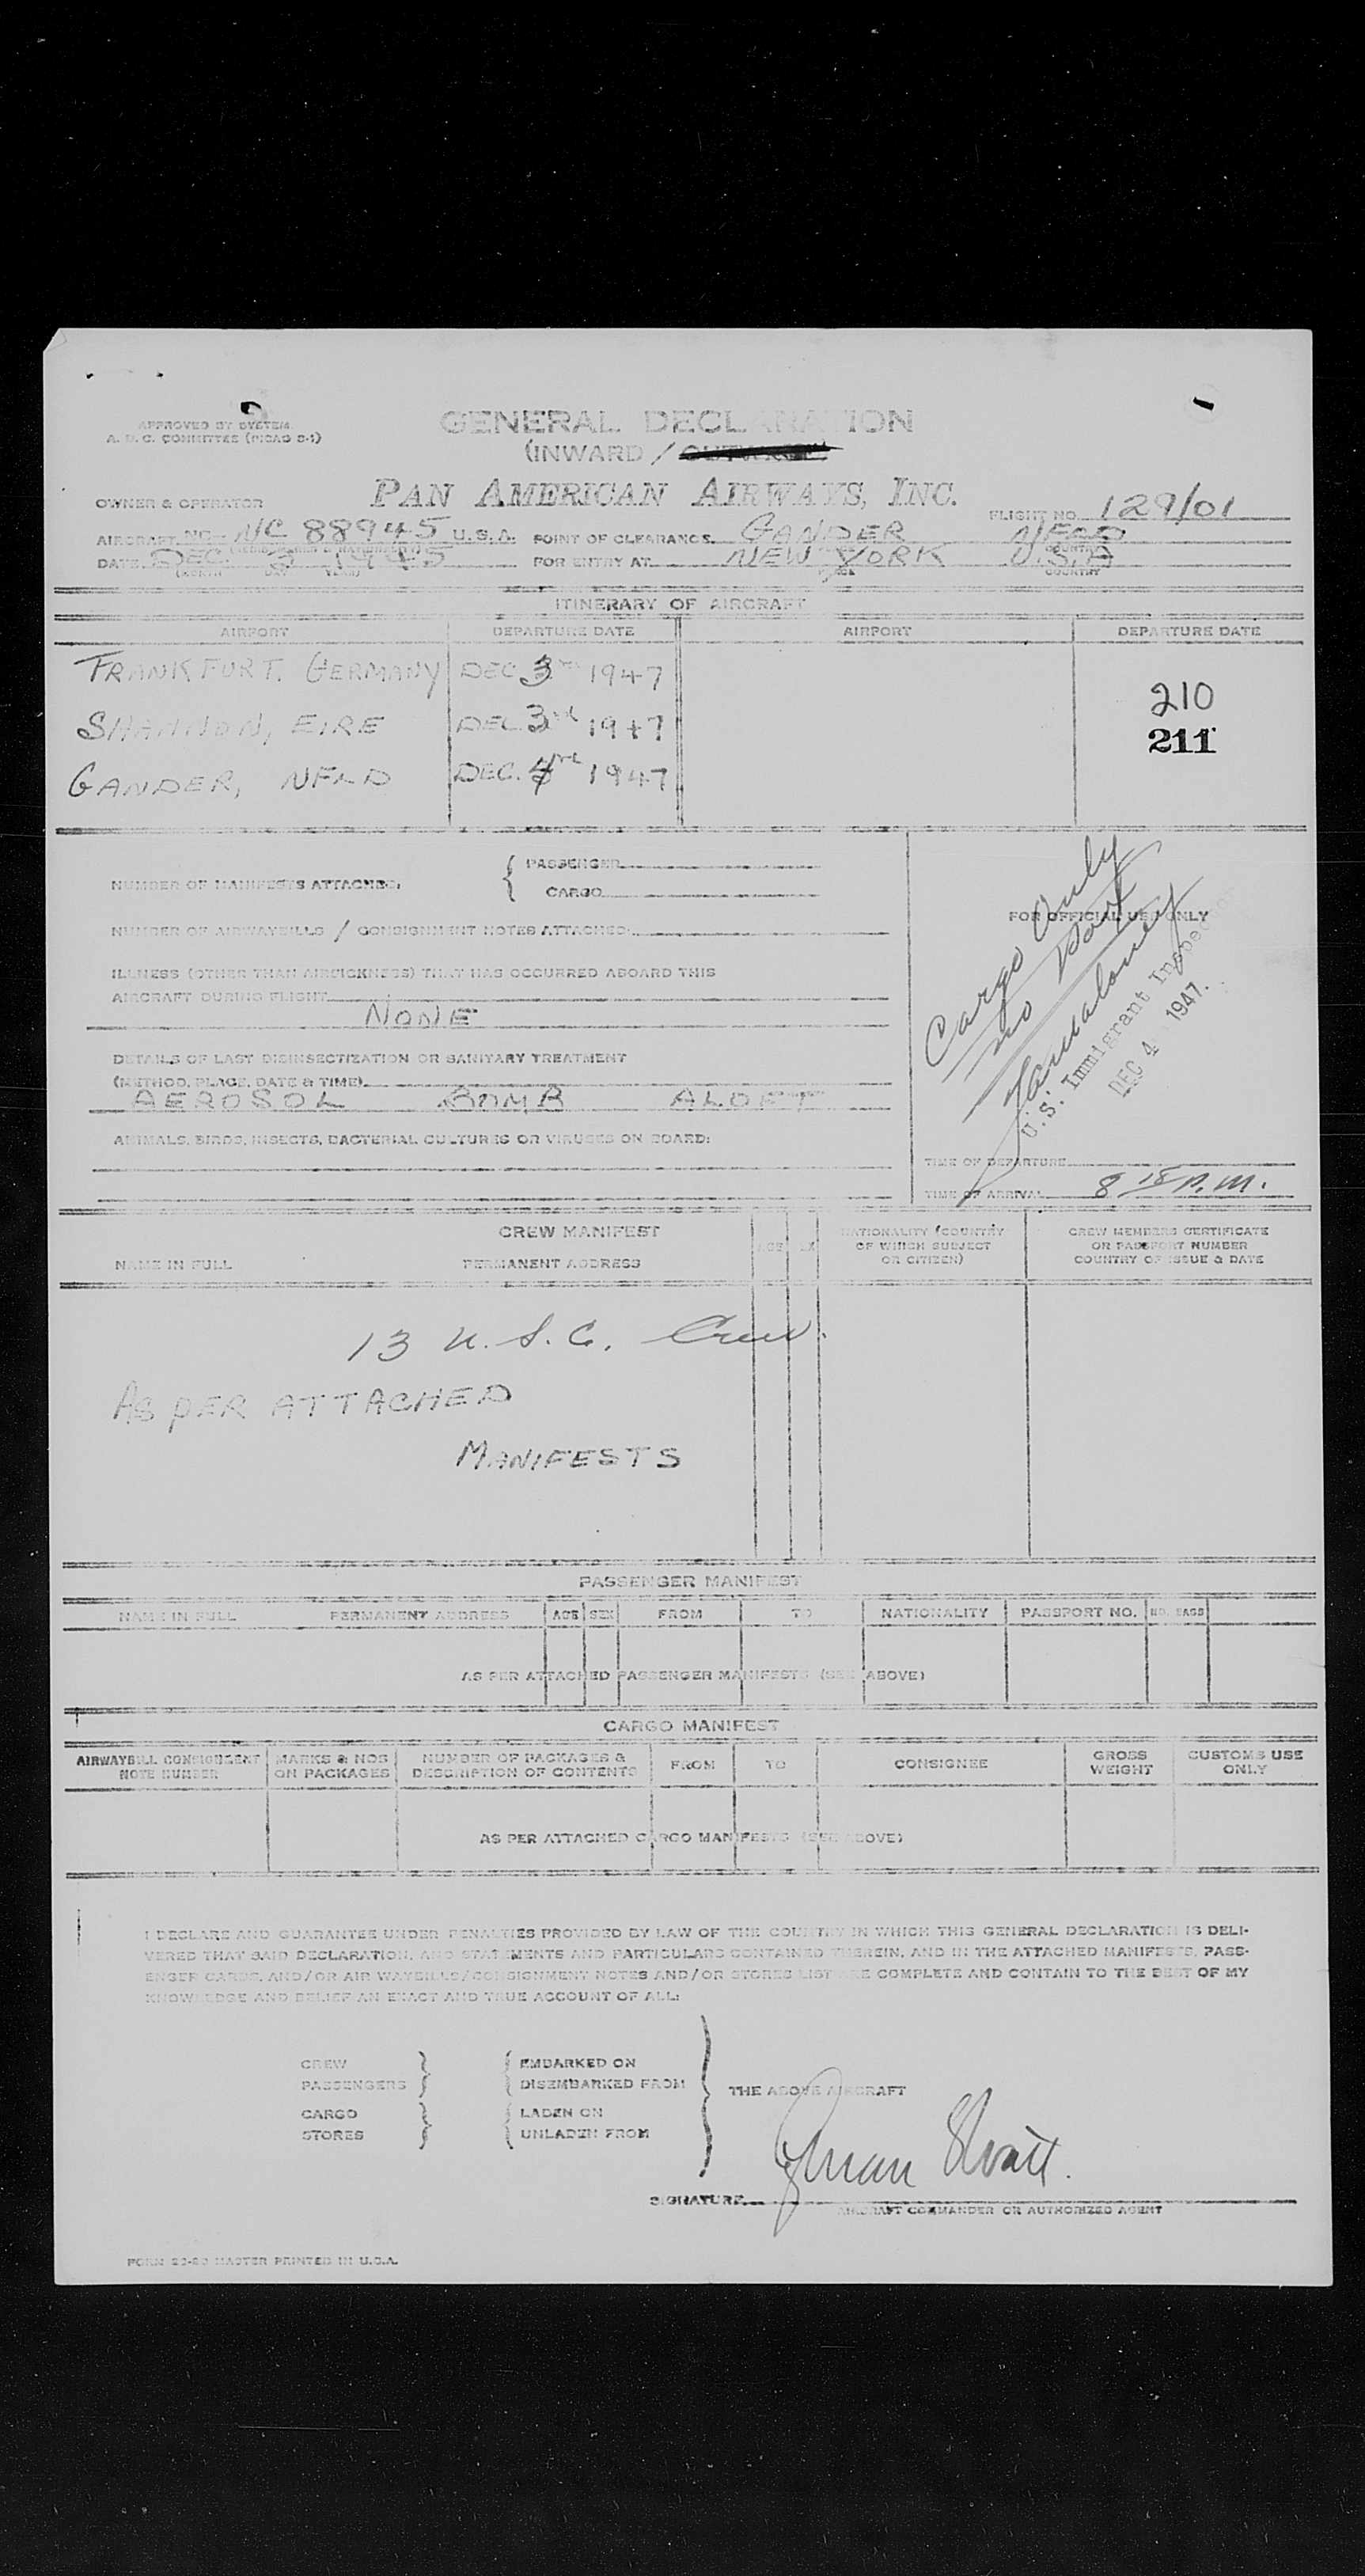 APPROVED BY SYSTEM
A. D. C. COMMITTEE (PICAO S-1)
GENERAL DECLARATION
(INWARD / OUTWARD)
OWNER & OPERATOR
PAN AMERICAN AIRWAYS, INC.
FLIGHT NO. 129/01
AIRCRAFT NO. NC 88945 U. S. A. POINT OF CLEARANCE GANDER NFLD
COUNTRY
DATE DEC. 3 1945 FOR ENTRY AT NEW YORK U.S.A
(MONTH DAY YEAR) COUNTRY
ITINERARY OF AIRCRAFT
AIRPORT DEPARTURE DATE AIRPORT DEPARTURE DATE
FRANKFURT. GERMANY DEC 3 1947
210
SHANNON, EIRE DEC 3 1947
211
GANDER, NFLD DEC. 4 1947
NUMBER OF MANIFESTS ATTACHED. { PASSENGER
CARGO
NUMBER OF AIRWAYBILLS / CONSIGNMENT NOTES ATTACHED:
ILLNESS (OTHER THAN AIRSICKNESS) THAT HAS OCCURRED ABOARD THIS
AIRCRAFT DURING FLIGHT
NONE
DETAILS OF LAST DISINSECTIZATION OR SANITARY TREATMENT
(METHOD, PLACE, DATE & TIME)
AEROSOL BOMB ALOFT
ANIMALS, BIRDS, INSECTS, BACTERIAL CULTURES OR VIRUSES ON BOARD:
FOR OFFICIAL USE ONLY
Cargo Only
No
U.S. Immigrant Inspector
DEC 4 1947.
TIME OF DEPARTURE
TIME OF ARRIVAL 8 18 P.M.
CREW MANIFEST
NAME IN FULL PERMANENT ADDRESS AGE SEX NATIONALITY (COUNTRY OF WHICH SUBJECT OR CITIZEN) CREW MEMBERS CERTIFICATE OR PASSPORT NUMBER COUNTRY OF ISSUE & DATE
13 U. S. C. Crew.
AS PER ATTACHED
MANIFESTS
PASSENGER MANIFEST
NAME IN FULL PERMANENT ADDRESS AGE SEX FROM TO NATIONALITY PASSPORT NO. NO. BAGS
AS PER ATTACHED PASSENGER MANIFESTS (SEE ABOVE)
CARGO MANIFEST
AIRWAYBILL CONSIGNMENT NOTE NUMBER MARKS & NOS ON PACKAGES NUMBER OF PACKAGES & DESCRIPTION OF CONTENTS FROM TO CONSIGNEE GROSS WEIGHT CUSTOMS USE ONLY
AS PER ATTACHED CARGO MANIFESTS (SEE ABOVE)
I DECLARE AND GUARANTEE UNDER PENALTIES PROVIDED BY LAW OF THE COUNTRY IN WHICH THIS GENERAL DECLARATION IS DELI-
VERED THAT SAID DECLARATION, AND STATEMENTS AND PARTICULARS CONTAINED THEREIN, AND IN THE ATTACHED MANIFESTS, PASS-
ENGER CARDS, AND/OR AIR WAYBILLS/CONSIGNMENT NOTES AND/OR STORES LIST ARE COMPLETE AND CONTAIN TO THE BEST OF MY
KNOWLEDGE AND BELIEF AN EXACT AND TRUE ACCOUNT OF ALL:
CREW } { EMBARKED ON
PASSENGERS } { DISEMBARKED FROM } THE ABOVE AIRCRAFT
CARGO } { LADEN ON
STORES } { UNLADEN FROM
SIGNATURE
AIRCRAFT COMMANDER OR AUTHORIZED AGENT
MASTER PRINTED IN U.S.A.